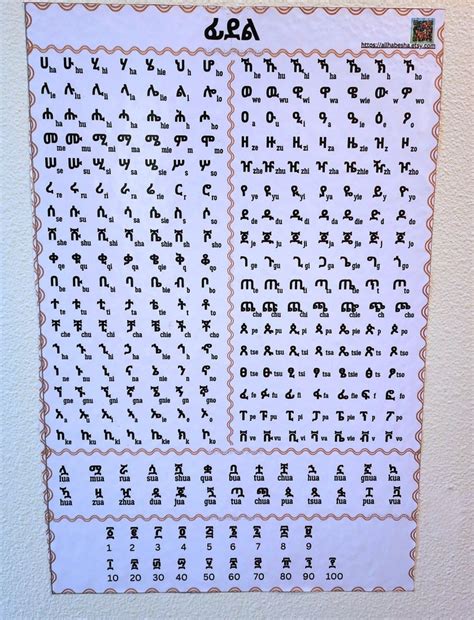 ፊደል
https://allhabesha.etsy.com
ሀ ha ሁ hu ሂ hi ሃ ha ሄ hie ህ h ሆ ho
ለ le ሉ lu ሊ li ላ la ሌ lie ል l ሎ lo
ሐ ha ሑ hu ሒ hi ሓ ha ሔ hie ሕ h ሖ ho
መ me ሙ mu ሚ mi ማ ma ሜ mie ም m ሞ mo
ሠ se ሡ su ሢ si ሣ sa ሤ sie ሥ s ሦ so
ረ re ሩ ru ሪ ri ራ ra ሬ rie ር r ሮ ro
ሰ se ሱ su ሲ si ሳ sa ሴ sie ስ s ሶ so
ሸ she ሹ shu ሺ shi ሻ sha ሼ shie ሽ sh ሾ sho
ቀ qe ቁ qu ቂ qi ቃ qa ቄ qie ቅ q ቆ qo
በ be ቡ bu ቢ bi ባ ba ቤ bie ብ b ቦ bo
ተ te ቱ tu ቲ ti ታ ta ቴ tie ት t ቶ to
ቸ che ቹ chu ቺ chi ቻ cha ቼ chie ች ch ቾ cho
ኀ ha ኁ hu ኂ hi ኃ ha ኄ hie ኅ h ኆ ho
ነ ne ኑ nu ኒ ni ና na ኔ nie ን n ኖ no
ኘ gne ኙ gnu ኚ gni ኛ gna ኜ gnie ኝ gn ኞ gno
አ a ኡ u ኢ i ኣ a ኤ ie እ e ኦ o
ከ ke ኩ ku ኪ ki ካ ka ኬ kie ክ k ኮ ko
ኸ he ኹ hu ኺ hi ኻ ha ኼ hie ኽ h ኾ ho
ወ we ዉ wu ዊ wi ዋ wa ዌ wie ው w ዎ wo
ዐ a ዑ u ዒ i ዓ a ዔ ie ዕ e ዖ o
ዘ ze ዙ zu ዚ zi ዛ za ዜ zie ዝ z ዞ zo
ዠ zhe ዡ zhu ዢ zhi ዣ zha ዤ zhie ዥ zh ዦ zho
የ ye ዩ yu ዪ yi ያ ya ዬ yie ይ y ዮ yo
ደ de ዱ du ዲ di ዳ da ዴ die ድ d ዶ do
ጀ je ጁ ju ጂ ji ጃ ja ጄ jie ጅ j ጆ jo
ገ ge ጉ gu ጊ gi ጋ ga ጌ gie ግ g ጎ go
ጠ te ጡ tu ጢ ti ጣ ta ጤ tie ጥ t ጦ to
ጨ che ጩ chu ጪ chi ጫ cha ጬ chie ጭ ch ጮ cho
ጰ pe ጱ pu ጲ pi ጳ pa ጴ pie ጵ p ጶ po
ጸ tse ጹ tsu ጺ tsi ጻ tsa ጼ tsie ጽ ts ጾ tso
ፀ tse ፁ tsu ፂ tsi ፃ tsa ፄ tsie ፅ ts ፆ tso
ፈ fe ፉ fu ፊ fi ፋ fa ፌ fie ፍ f ፎ fo
ፐ pe ፑ pu ፒ pi ፓ pa ፔ pie ፕ p ፖ po
ቨ ve ቩ vu ቪ vi ቫ va ቬ vie ቭ v ቮ vo
ሏ ሟ ሯ ሷ ሿ ቋ ቧ ቷ ቿ ኗ ኟ ኳ
lua mua rua sua shua qua bua tua chua nua gnua kua
ኋ ዟ ዧ ዷ ጇ ጓ ጧ ጯ ጷ ጿ ፏ ፗ ቯ
hua zua zhua dua jua gua tua chua pua tsua fua pua vua
፩ ፪ ፫ ፬ ፭ ፮ ፯ ፰ ፱
1 2 3 4 5 6 7 8 9
፲ ፳ ፴ ፵ ፶ ፷ ፸ ፹ ፺ ፻
10 20 30 40 50 60 70 80 90 100